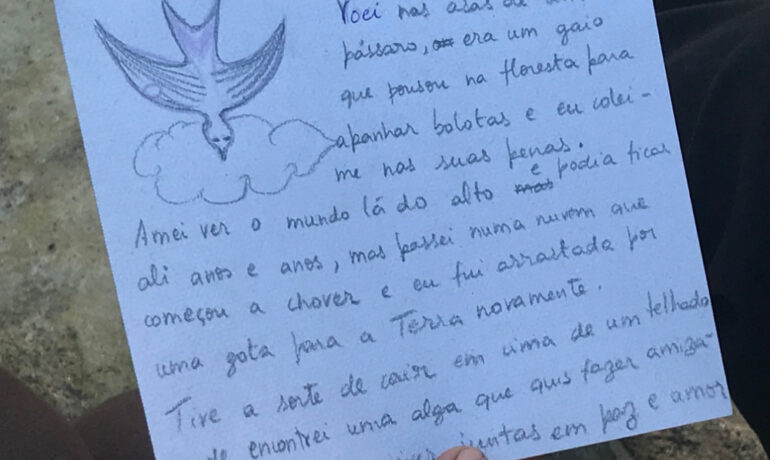 Voei nas asas de um
pássaro, era um gaio
que pousou na floresta para
apanhar bolotas e eu colei-
me nas suas penas.
Amei ver o mundo lá do alto e podia ficar
ali anos e anos, mas passei numa nuvem que
começou a chover e eu fui arrastada por
uma gota para a Terra novamente.
Tive a sorte de cair em cima de um telhado
encontrei uma alga que quis fazer amiza-
juntas em paz e amor